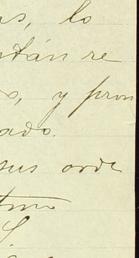 as, lo
tán re
s, y pron
ado.
sus orde
tmo
S.